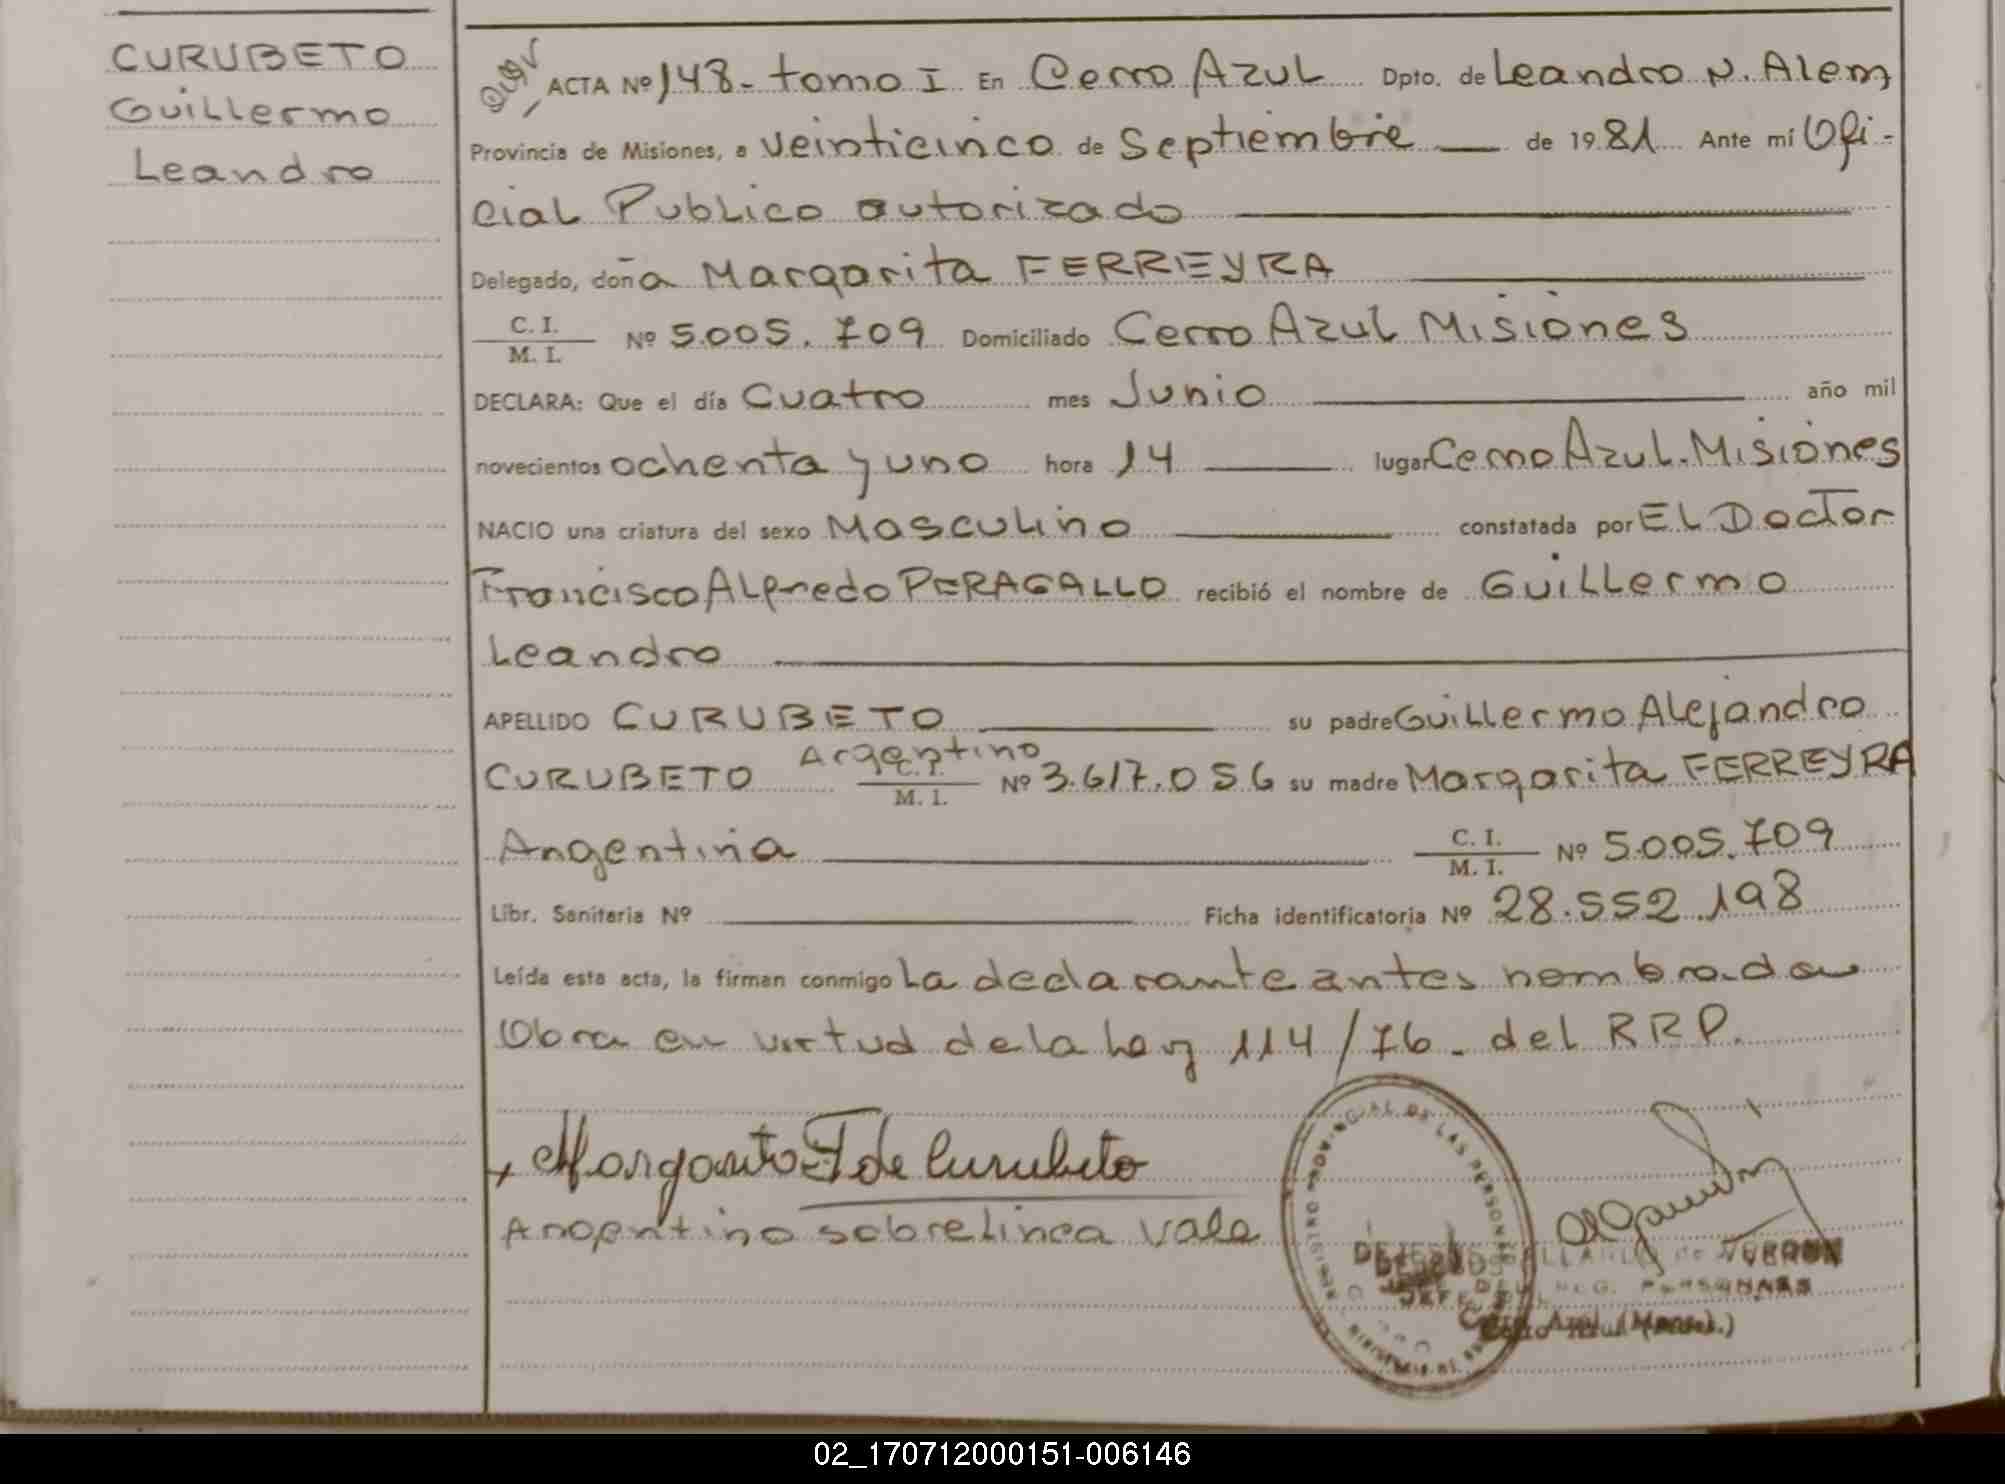 CURUBETO
Guillermo
Leandro
ACTA Nº 148- tomo I En Cerro Azul Dpto. de Leandro N. Alem
Provincia de Misiones, a veinticinco de Septiembre de 1981 Ante mí Ofi-
cial Publico autorizado
Delegado, doña Margarita FERREYRA
C. I.
M. I. Nº 5.005.709 Domiciliado Cerro Azul Misiones
DECLARA: Que el día Cuatro mes Junio año mil
novecientos ochenta y uno hora 14 lugar Cerro Azul. Misiones
NACIO una criatura del sexo Masculino constatada por El Doctor
Francisco Alfredo PERAGALLO recibió el nombre de Guillermo
Leandro
APELLIDO CURUBETO su padre Guillermo Alejandro
Argentino
CURUBETO C. I. M. I. Nº 3.617.056 su madre Margarita FERREYRA
Argentina C. I. M. I. Nº 5.005.709
Libr. Sanitaria Nº Ficha identificatoria Nº 28.552.198
Leída esta acta, la firman conmigo La declarante antes nombrada
Obra en virtud de la Ley 114/76. del RRP.
Margarita F de Curubeto
Argentino sobrelinea vale
REGISTRO PROVINCIAL DE LAS PERSONAS
REG. PERSONAS
Cerro Azul (Mnes.)
02_170712000151-006146